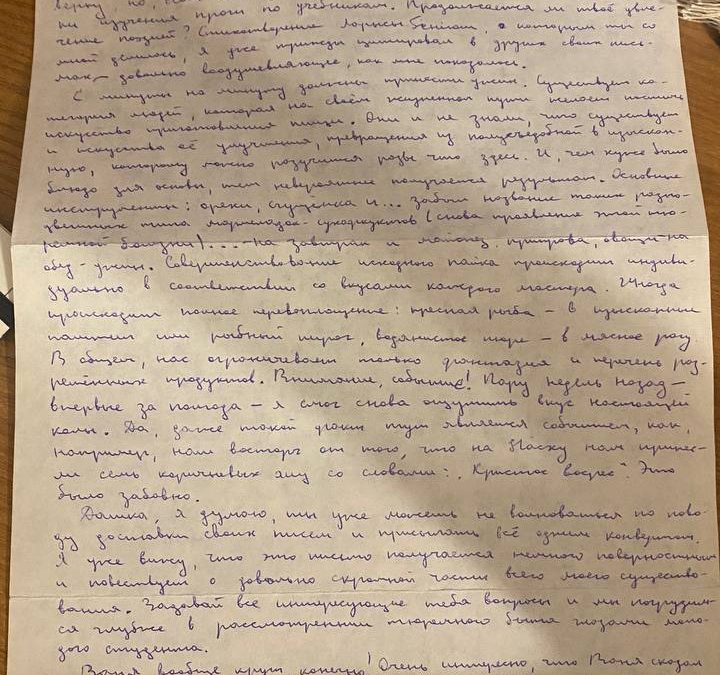 верку но, с
ни изучения проги по учебникам. Продолжается ли твоё увле-
чение поэзией? Стихотворение Ларисы о котором ты со
мной делилась, я уже прежде цитировал в других своих пись-
мах – довольно воодушевляющее, как мне показалось.
С минуты на минуту должны принести ужин. Существует ка-
тегория людей, которая на своём жизненном пути
искусство приготовления пищи. Они и не знали, что существует
и искусство её улучшения, превращения из полусъедобной в изыскан-
ную, которому можно разучиться разве что здесь. И, чем хуже было
блюдо для основы, тем невероятнее получается результат. Основные
инструменты: орехи, сгущёнка и... забыл название таких разно-
цветных типа мармеладок-сухофруктов (снова проявление этой тю-
ремной болезни)... – на завтрак и майонез, приправа, овощи – на
обед-ужин. Совершенствование исходного пайка происходит индиви-
дуально в соответствии со вкусами каждого мастера. Иногда
происходит полное перевоплощение: пресная рыба – в изысканный
паштет или рыбный пирог, водянистое пюре – в мясное рагу
В общем, нас ограничивает только фантазия и перечень раз-
решённых продуктов. Внимание, событие! Пару недель назад –
впервые за полгода – я смог снова ощутить вкус настоящей
колы. Да, даже такой факт тут является событием, как,
например, наш восторг от того, что на Пасху нам принес-
ли семь коричневых яиц со словами: „Христос воскрес". Это
было забавно.
Дашка, я думаю, ты уже можешь не волноваться по пово-
ду доставки своих писем и присылать всё одним конвертом.
Я уже вижу, что это письмо получается немного поверхностным
и повествует о довольно скромной части всего моего существо-
вания. Задавай все интересующие тебя вопросы и мы погрузим-
ся глубже в рассмотрении тюремного быта глазами моло-
дого студента.
Ваня вообще крут конечно! Очень интересно, что Ваня сказал